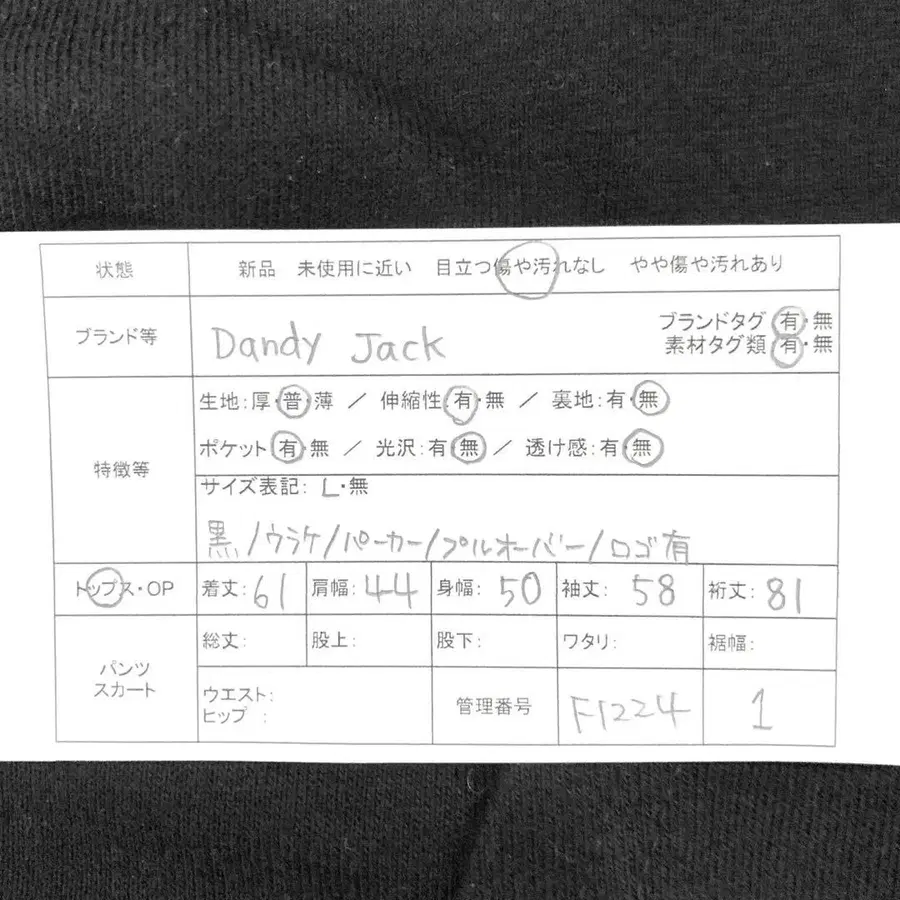 状態 新品 未使用に近い 目立つ傷や汚れなし やや傷や汚れあり
ブランド等 Dandy Jack ブランドタグ 有・無
素材タグ類 有・無
特徴等 生地:厚・普・薄 / 伸縮性 有・無 / 裏地:有・無
ポケット 有・無 / 光沢:有・無 / 透け感:有・無
サイズ表記: L・無
黒/ウラケ/パーカー/プルオーバー/ロゴ有
トップス・OP 着丈:61 肩幅:44 身幅:50 袖丈:58 裄丈:81
パンツ
スカート
総丈: 股上: 股下: ワタリ: 裾幅:
ウエスト:
ヒップ :
管理番号 F1224 1